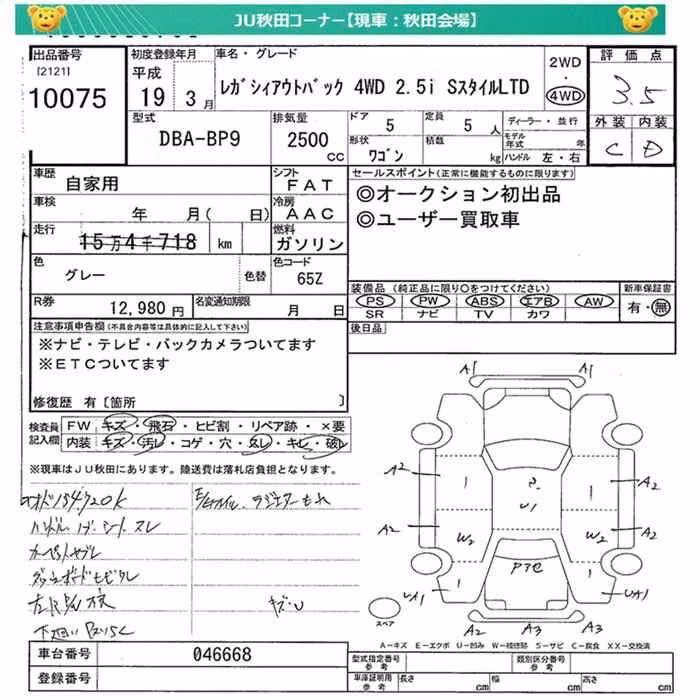 JU秋田コーナー【現車：秋田会場】
出品番号
[2121]
10075
初度登録年月
平成
19 3月
車名・グレード
レガシィアウトバック 4WD 2.5i SスタイルLTD
2WD
・
4WD
評価点
3.5
外装 内装
C D
型式
DBA-BP9
排気量
2500
cc
ドア 5
定員 5 人
形状 ワゴン
積数 kg
ディーラー・並行
モデル年式 年
ハンドル 左・右
車歴
自家用
シフト
FAT
車検
年 月( 日)
冷房
AAC
走行
15万4千718 km
燃料
ガソリン
色
グレー
色替
色コード
65Z
R券
12,980円
名変通知期限
月 日
セールスポイント(正常に機能するものに限ります)
◎オークション初出品
◎ユーザー買取車
装備品 (純正品に限り○をつけてください)
PS PW ABS エアB AW
SR ナビ TV カワ
新車保証書
有・無
後日品
注意事項申告欄(不具合内容等は具体的に記入して下さい)
※ナビ・テレビ・バックカメラついてます
※ETCついてます
修復歴 有 [箇所 ]
検査員記入欄
FW キズ・飛石・ヒビ割・リペア跡・×要
内装 キズ・汚レ・コゲ・穴・スレ・キレ・破レ
※現車はJU秋田にあります。陸送費は落札店負担となります。
ハンドル
スレ
キズ・U
A1 A1
A2 1 2 1 A2
U1
A2 W2 W2 A2
UA1 1 1 UA1
A2 A3 A3
スペア
A-キズ E-エクボ U-凹み W-補修跡 S-サビ C-腐食 XX-交換済
車台番号
046668
登録番号
型式指定番号
参考
類別区分番号
参考
車庫証明用
参考
長さ cm
幅 cm
高さ cm